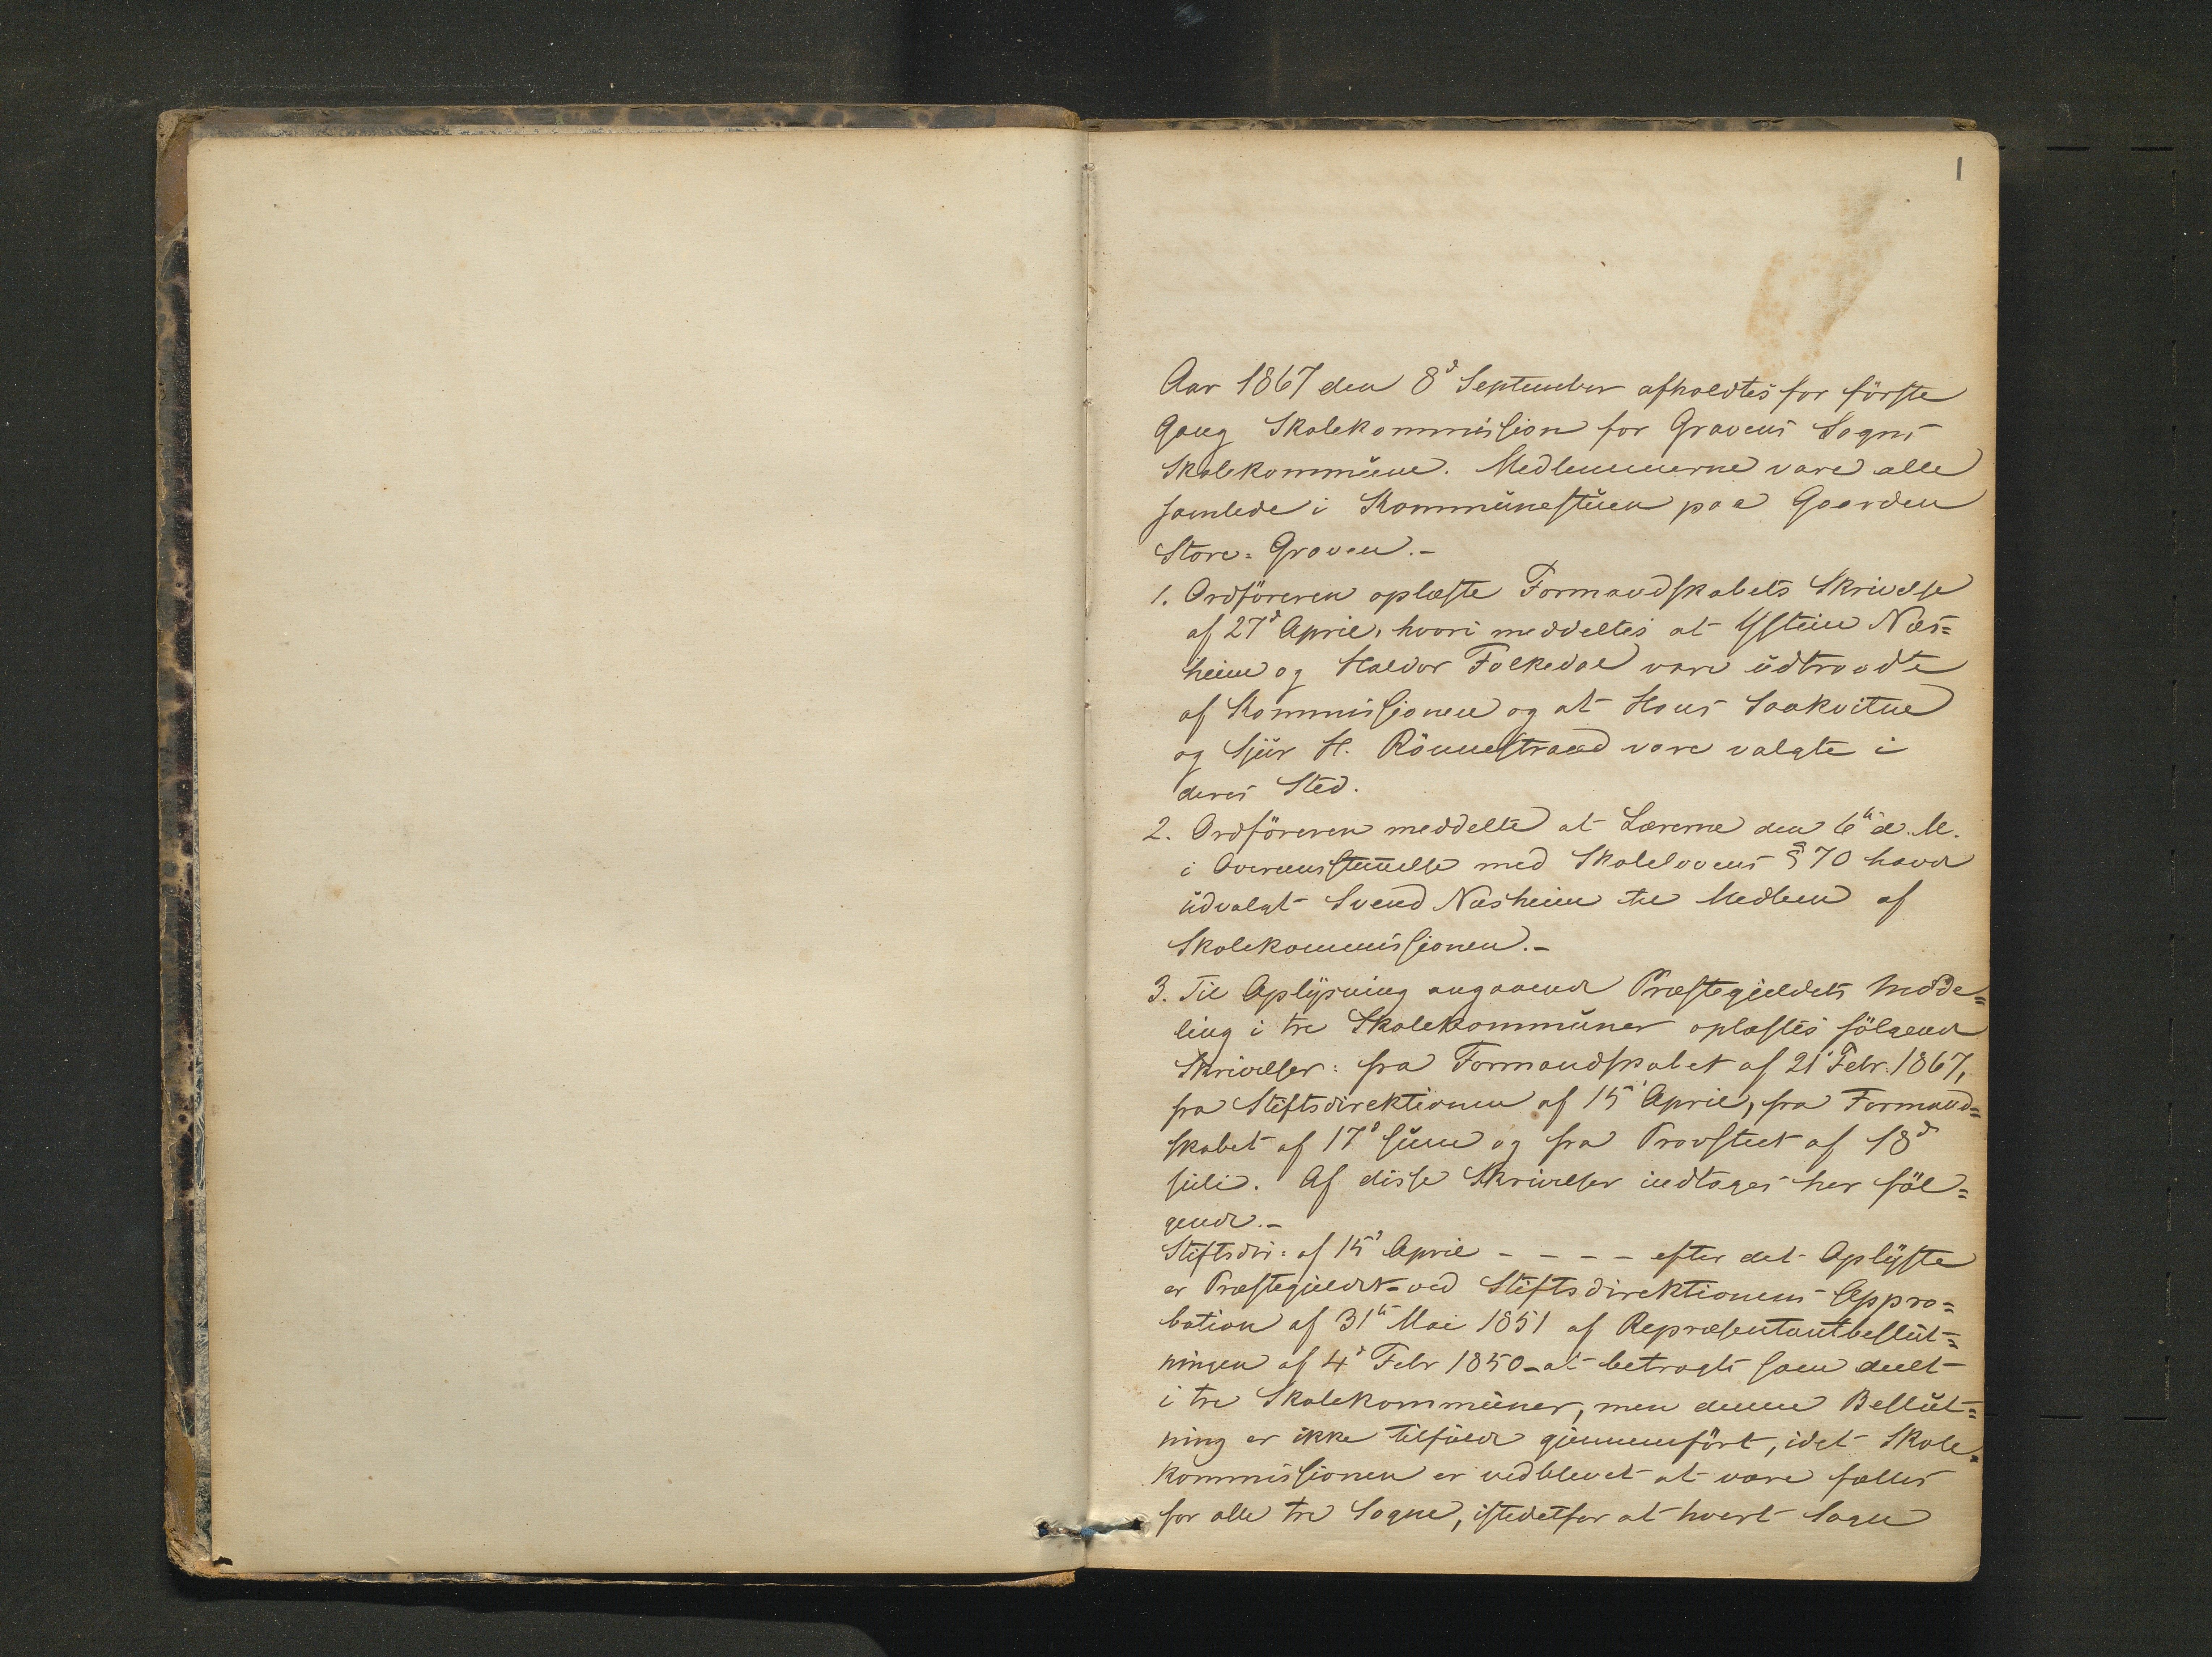 1
Aar 1867 den 8d September afholdtes for første
Gang Skolekommission for Gravens Sogns
Skolekommune. Medlemmerne vare alle
samlede i Kommunestuen paa Gaarden
Store=Graven.-
1. Ordføreren oplæste Formandskabets Skrivelse
af 27d April, hvori meddeltes at Ystein Næs=
heim og Haldor Folkedal vare udtraadte
af Kommissionen og at Hans Saakvitne
og Sjur H. Rönnestrand vare valgte i
deres Sted.
2. Ordføreren meddelte at Lærerne den 6te d. M.
i Overensstemmelse med Skolelovens § 70 havde
udvalgt Svend Næsheim til Medlem af
Skolekommissionen.-
3. Til Oplysning angaaende Præstegjeldets Indde=
ling i tre Skolekommuner oplæstes følgende
Skrivelser: fra Formandskabet af 21 Febr. 1867,
fra Stiftsdirektionen af 15 April, fra Formand=
skabet af 17d Juni og fra Provstiet af 18d
Juli. Af disse Skrivelser indtages her føl=
gende.-
Stiftsdir: af 15d April - - - - efter det Oplyste
er Præstegjeldet - ved Stiftsdirektionens Appro=
bation af 31te Mai 1851 af Repræsentantbeslut=
ningen af 4d Febr 1850 - at betragte som deelt
i tre Skolekommuner, men denne Beslut=
ning er ikke tilfulde gjennemført, idet Skole=
kommissionen er vedblevet at være fælles
for alle tre Sogne, istedetfor at hvert Sogn